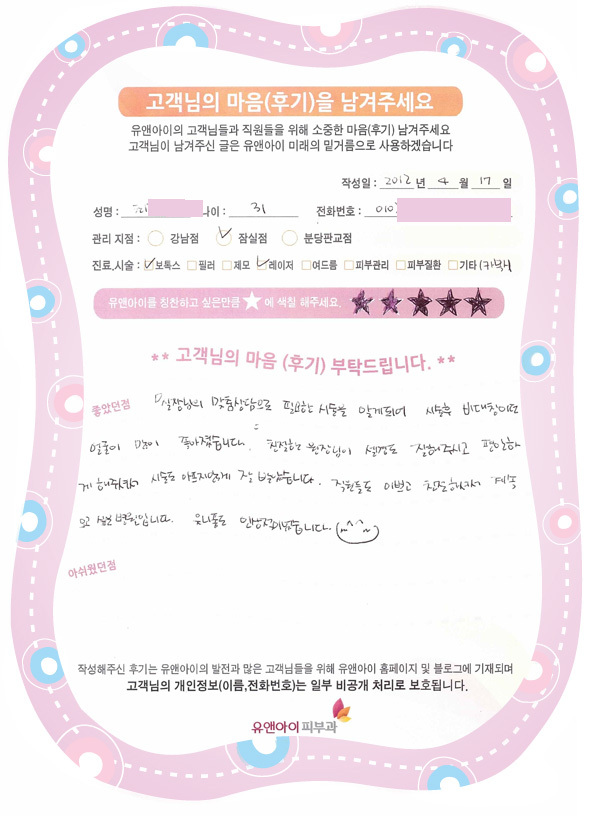 고객님의 마음(후기)을 남겨주세요
유앤아이의 고객님들과 직원들을 위해 소중한 마음(후기) 남겨주세요
고객님이 남겨주신 글은 유앤아이 미래의 밑거름으로 사용하겠습니다
작성일 : 2012 년 4 월 17 일
성명 : 나이 : 31 전화번호 : 010
관리 지점 : 강남점 잠실점 분당판교점
진료,시술 : 보톡스 필러 제모 레이저 여드름 피부관리 피부질환 기타
유앤아이를 칭찬하고 싶은만큼 ★ 에 색칠 해주세요.
** 고객님의 마음 (후기) 부탁드립니다. **
좋았던점 실장님의 맞춤상담으로 필요한 시술을 알게되어 시술후 비대칭이던
얼굴이 많이 좋아졌습니다. 친절한 원장님이 설명도 잘해주시고 편안하
게 해주셔서 시술도 아프지않게 잘 받았습니다. 직원들도 이쁘고 친절하셔서 계속
오고 싶은 병원입니다. 유니폼도 인상적이었습니다. ^^
아쉬웠던점
작성해주신 후기는 유앤아이의 발전과 많은 고객님들을 위해 유앤아이 홈페이지 및 블로그에 기재되며
고객님의 개인정보(이름,전화번호)는 일부 비공개 처리로 보호됩니다.
유앤아이피부과